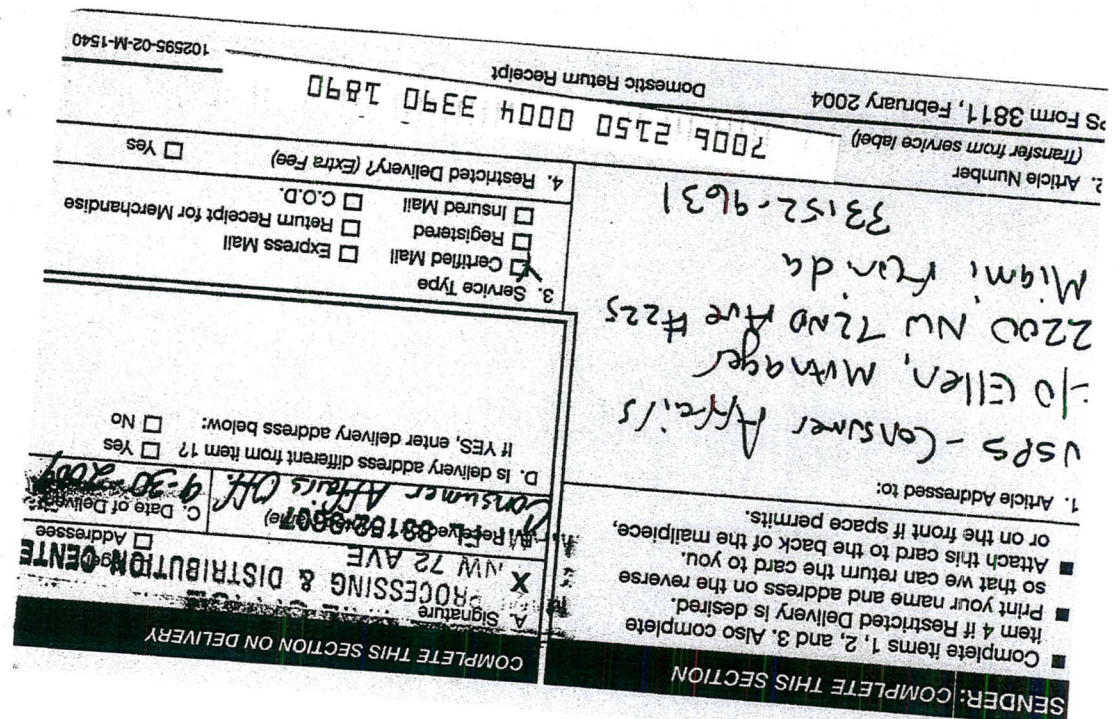 SENDER: COMPLETE THIS SECTION
■ Complete items 1, 2, and 3. Also complete
item 4 if Restricted Delivery is desired.
■ Print your name and address on the reverse
so that we can return the card to you.
■ Attach this card to the back of the mailpiece,
or on the front if space permits.
1. Article Addressed to:
USPS - Consumer Affairs
Ellen, Manager
2200 NW 72ND Ave #225
Miami, Florida
33152-9631
2. Article Number
(Transfer from service label)
7006 2150 0004 3390 1890
PS Form 3811, February 2004
Domestic Return Receipt
102595-02-M-1540
COMPLETE THIS SECTION ON DELIVERY
A. Signature
X
PROCESSING & DISTRIBUTION CENTE
NW 72 AVE
☐ Addressee
C. Date of Delivery
Consumer Affairs Off.
9-30-2009
D. Is delivery address different from item 1? ☐ Yes
If YES, enter delivery address below: ☐ No
3. Service Type
☐ Certified Mail ☐ Express Mail
☐ Registered ☐ Return Receipt for Merchandise
☐ Insured Mail ☐ C.O.D.
4. Restricted Delivery? (Extra Fee) ☐ Yes